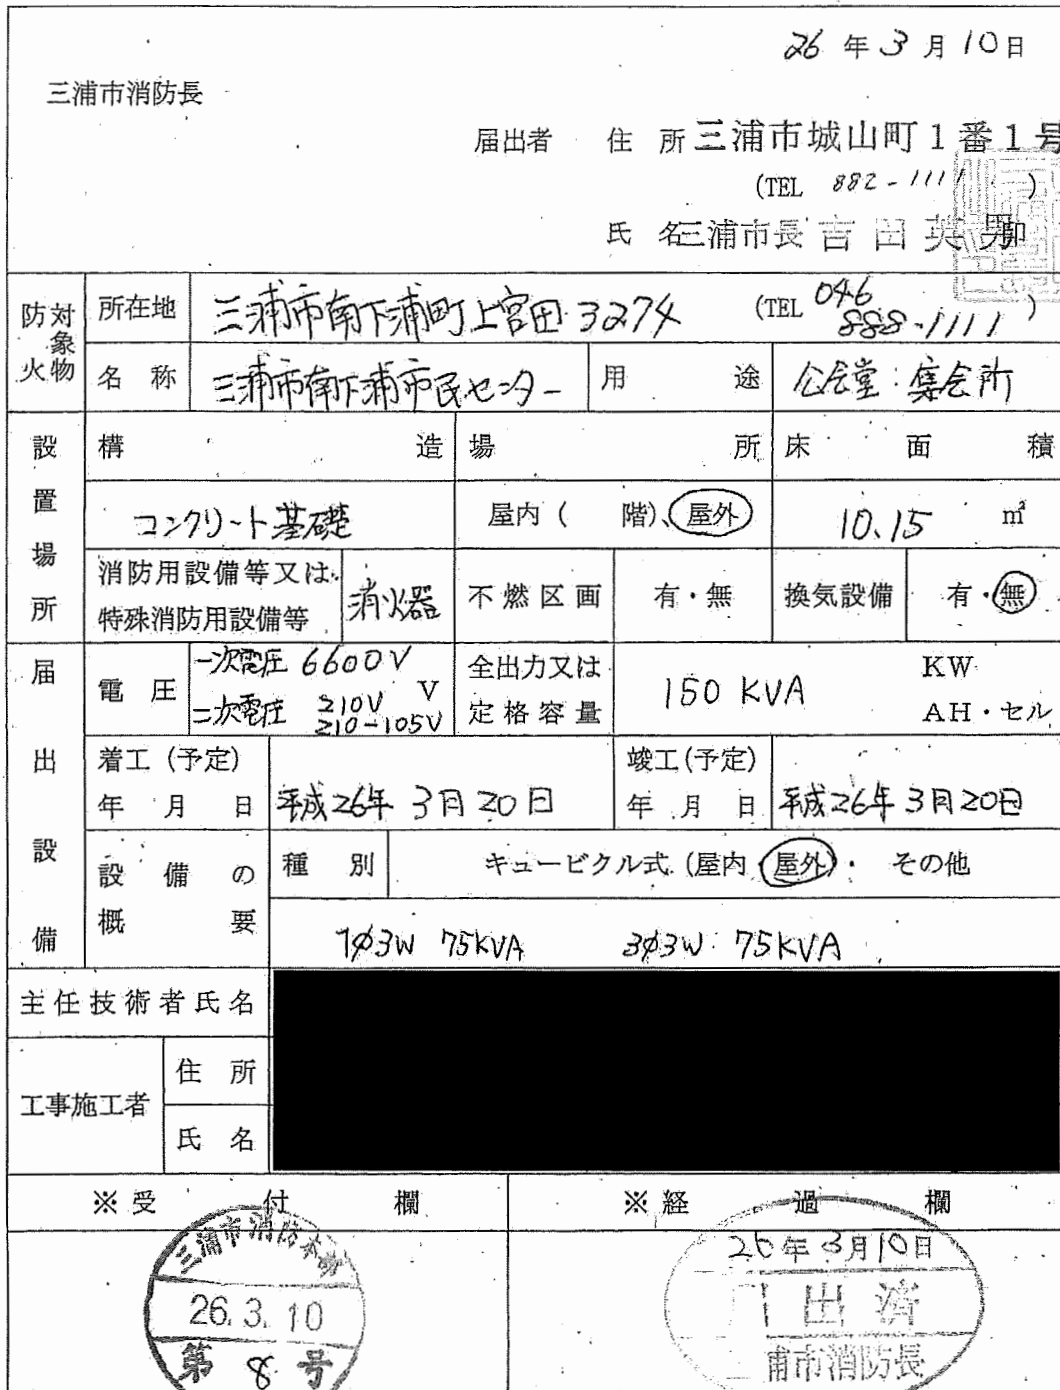 26 年 3 月 10 日
三浦市消防長
届出者 住 所 三浦市城山町1番1号
(TEL 882-1111 )
氏 名 三浦市長 吉田英男 印
防火対象物
所在地 三浦市南下浦町上宮田 3274 (TEL 046 888-1111 )
名 称 三浦市南下浦市民センター 用 途 公会堂・集会所
設置場所
構 造 場 所 床 面 積
コンクリート基礎 屋内 ( 階)、屋外 10.15 ㎡
消防用設備等又は特殊消防用設備等 消火器 不燃区画 有・無 換気設備 有・無
届出設備
電 圧 一次電圧 6600V
二次電圧 210V 210-105V V
全出力又は定格容量 150 KVA KW
AH・セル
着工(予定)年 月 日 平成26年 3月 20日 竣工(予定)年 月 日 平成26年 3月 20日
設備の概要
種 別 キュービクル式 (屋内・屋外)・ その他
1φ3W 75KVA 3φ3W 75KVA
主任技術者氏名
工事施工者
住 所
氏 名
※ 受 付 欄 ※ 経 過 欄
三浦市消防本部
26. 3. 10
第 8 号
26年3月10日
出 済
浦市消防長